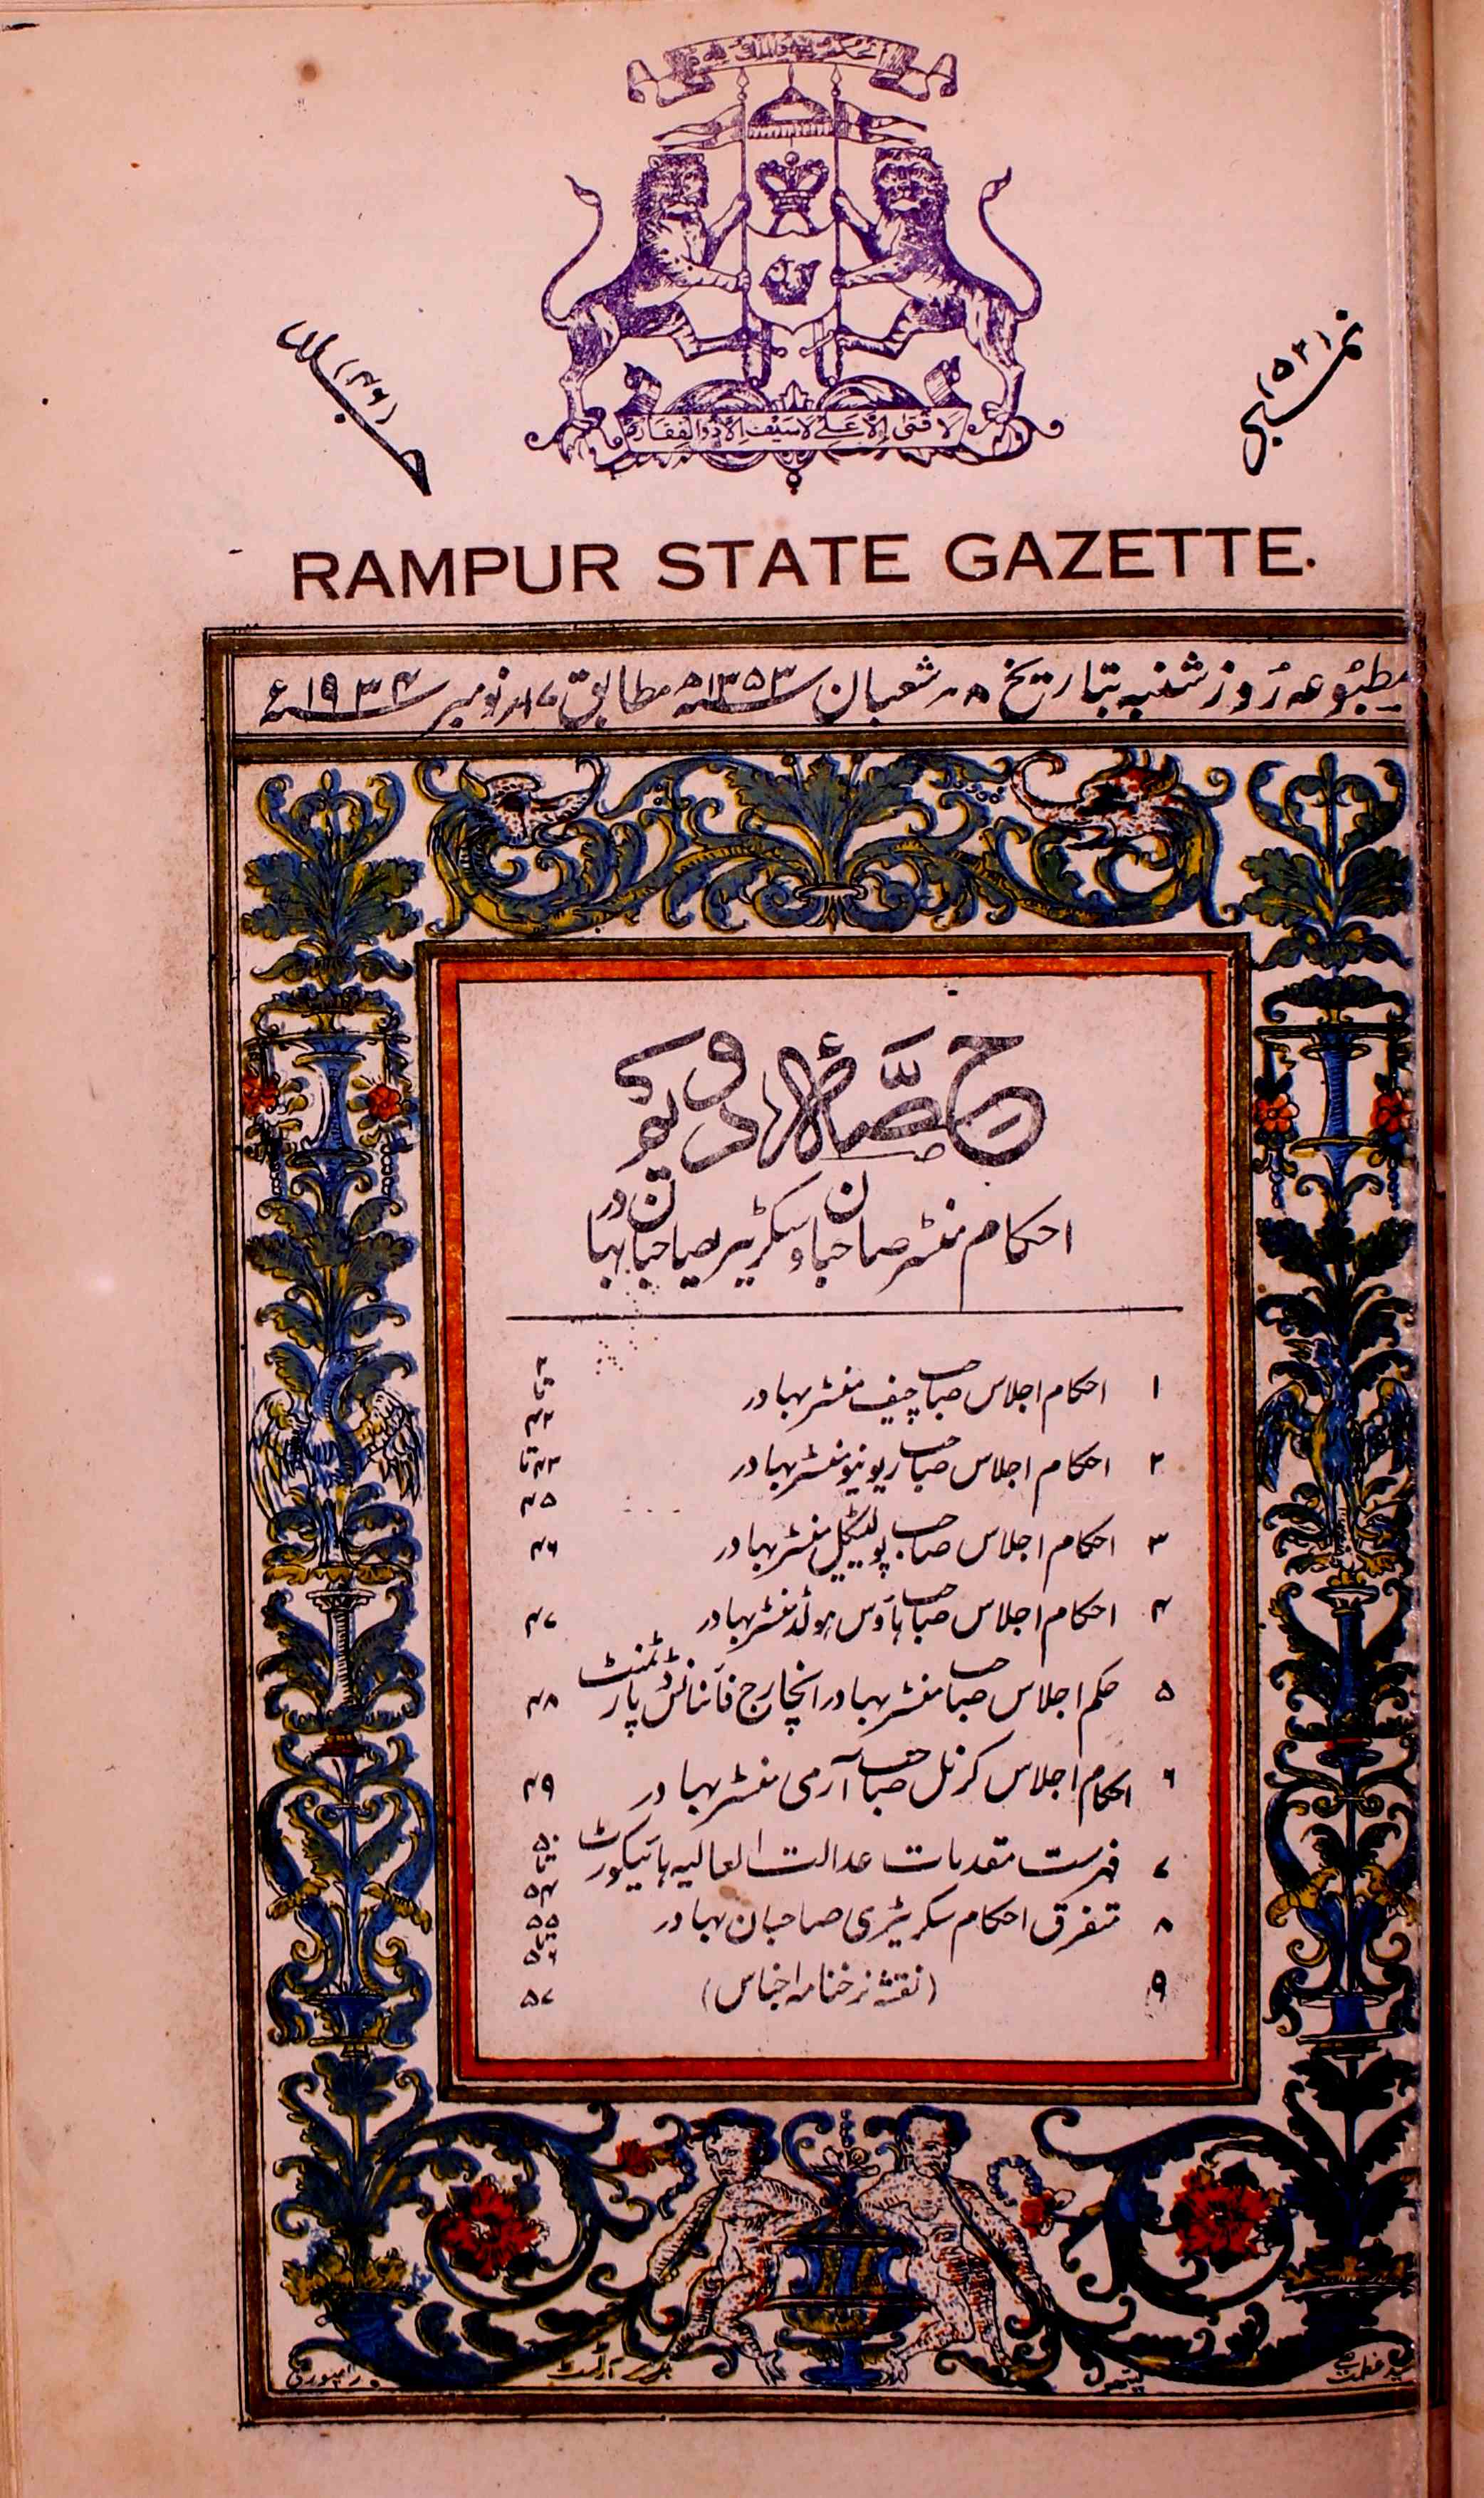 لا فتی الا علی لا سیف الا ذوالفقار
نمبر (۵۲۱)
جلد (۴۶)
RAMPUR STATE GAZETTE.
مطبوعہ روز شنبہ بتاریخ ۸ شعبان ۱۳۵۳ھ مطابق ۱۷ نومبر ۱۹۳۴ء
حصہ اردو
احکام منسٹر صاحبان و سکریٹری صاحبان بہادر
۱ احکام اجلاس صاحب چیف منسٹر بہادر ۲ تا ۴۲
۲ احکام اجلاس صاحب ریونیو منسٹر بہادر ۴۳ تا ۴۵
۳ احکام اجلاس صاحب پولیٹیکل منسٹر بہادر ۴۶
۴ احکام اجلاس صاحب ہاؤس ہولڈ منسٹر بہادر ۴۷
۵ حکم اجلاس صاحب منسٹر بہادر انچارج فائنانس ڈپارٹمنٹ ۴۸
۶ احکام اجلاس کرنل صاحب آرمی منسٹر بہادر ۴۹
۷ فہرست مقدمات عدالت العالیہ ہائیکورٹ ۵۰ تا ۵۴
۸ متفرق احکام سکریٹری صاحبان بہادر ۵۵ تا ۵۶
۹ (نقشہ نرخنامہ اجناس) ۵۷
آرٹسٹ رامپوری